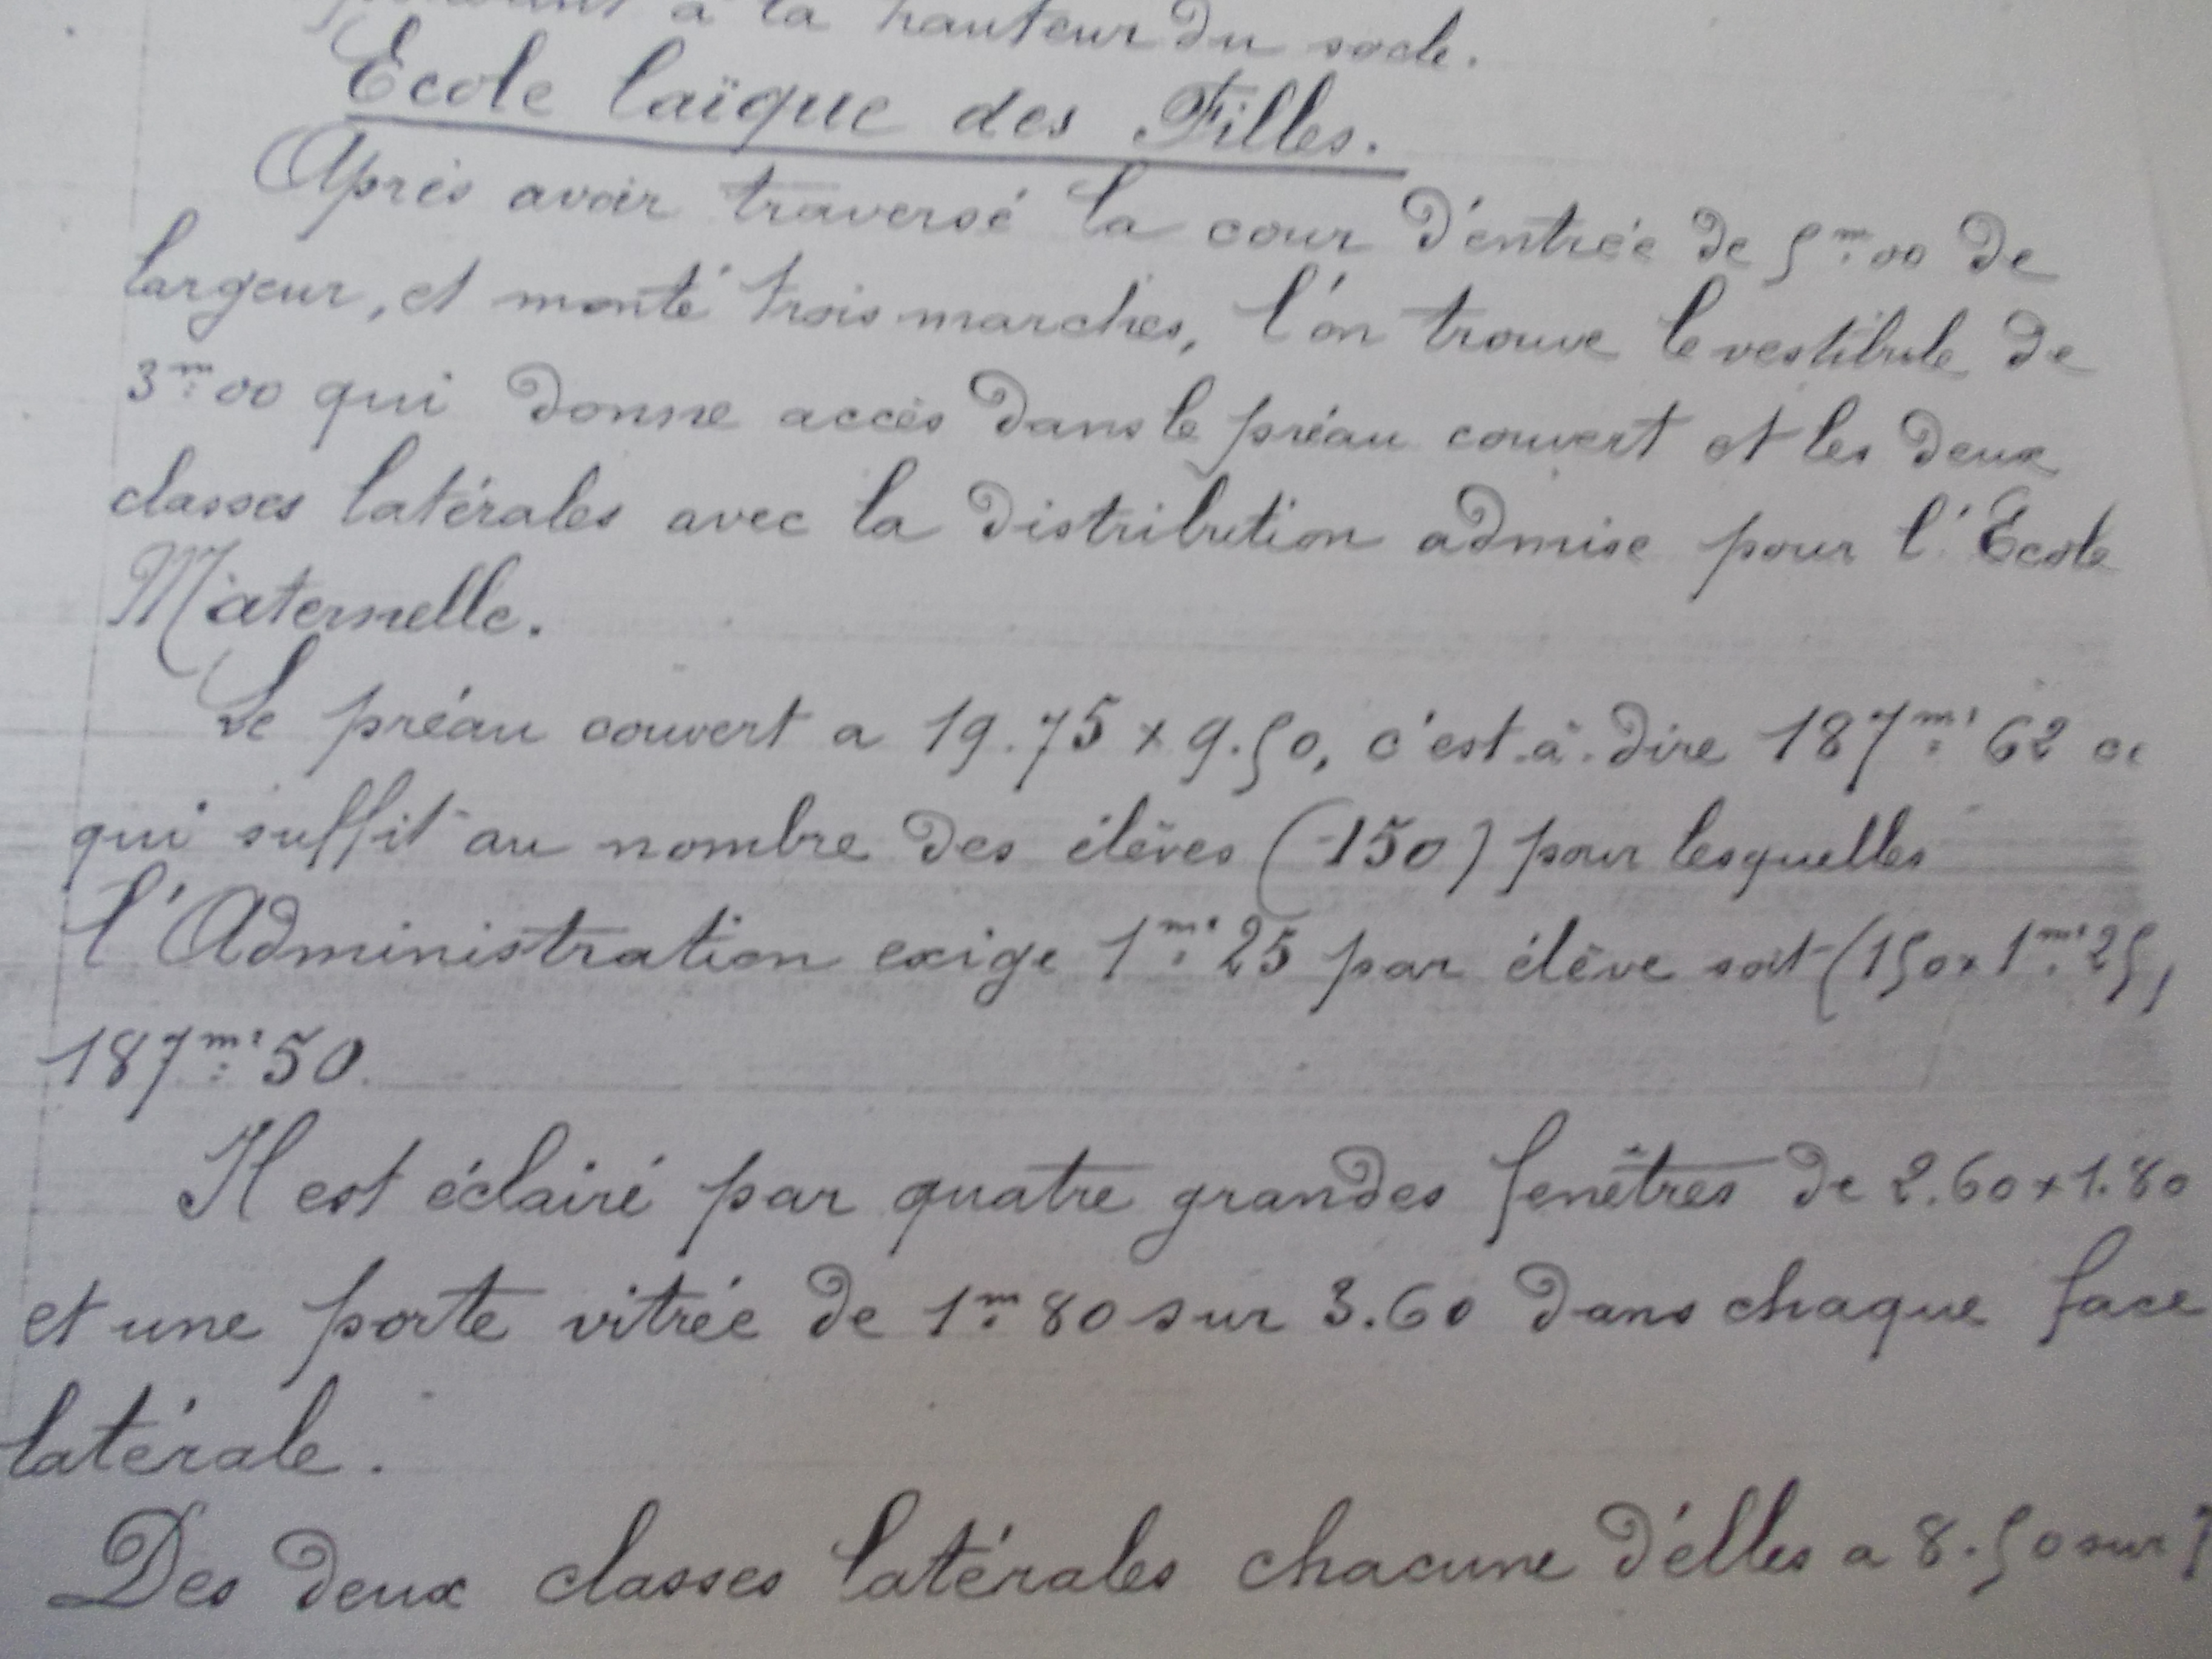 à la hauteur du socle.
Ecole laïque des Filles.
Après avoir traversé la cour d'entrée de 5m.00 de
largeur, et monté trois marches, l'on trouve le vestibule de
3m.00 qui donne accès dans le préau couvert et les deux
classes latérales avec la distribution admise pour l'Ecole
Maternelle.
Le préau couvert a 19.75 x 9.50, c'est.à.dire 187m²62 ce
qui suffit au nombre des élèves (150) pour lesquelles
l'Administration exige 1m²25 par élève soit (150x1m²25)
187m²50.
Il est éclairé par quatre grandes fenêtres de 2.60x1.80
et une porte vitrée de 1m.80 sur 3.60 dans chaque face
latérale.
Des deux classes latérales chacune d'elles a 8.50 sur